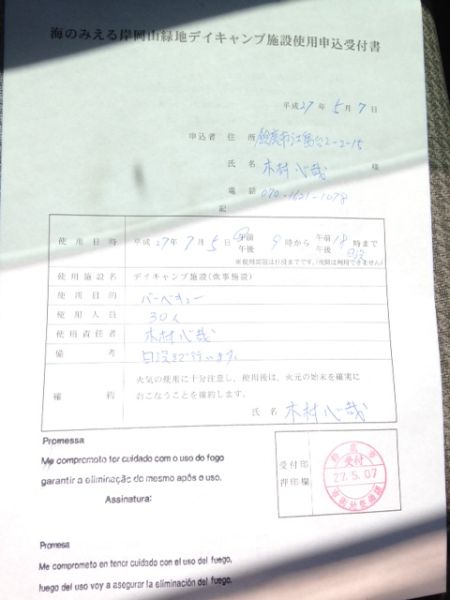 海のみえる岸岡山緑地デイキャンプ施設使用申込受付書
平成27年5月7日
申込者 住所 鈴鹿市江島台2-2-15
氏名 木村心哉 様
電話 070-1621-1078
記
使用日時 平成27年7月5日 午前 午後 9時から 午前 午後 18時まで
使用施設名 デイキャンプ施設(炊事施設)
使用目的 バーベキュー
使用人員 30人
使用責任者 木村心哉
備考 日没まで行います。
確約 火気の使用に十分注意し、使用後は、火元の始末を確実に
おこなうことを確約します。
氏名 木村心哉
Promessa
Me comprometo ter cuidado com o uso do fogo
garantir a eliminação do mesmo após o uso.
Assinatura:
受付印
押印欄
鈴鹿市
受付
27.5.07
市街地整備課
Promesa
Me comprometo en tener cuidado con el uso del fuego,
luego del uso voy a asegurar la eliminación del fuego.